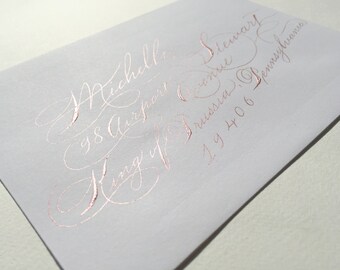 Michelle Stewart
98 Airport Avenue
King of Prussia, Pennsylvania
19406